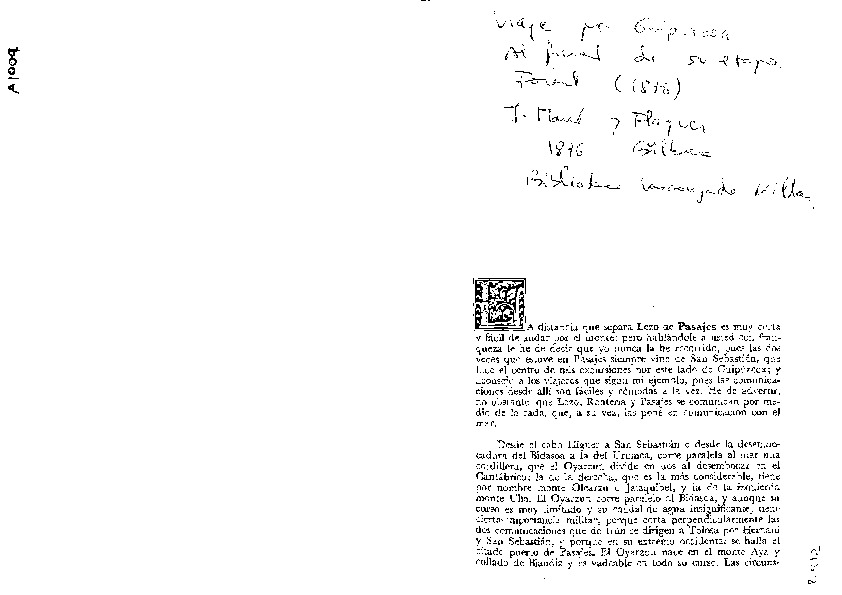 A1009
Viaje por Guipuzcoa
Al final de su etapa
Foral (1876)
J. Mañé y Flaquer
1876 Bilbao
Biblioteca Vascongada Villar
LA distancia que separa Lezo de Pasajes es muy corta
y fácil de andar por el monte; pero hablándole a usted con fran-
queza le he de decir que yo nunca la he recorrido, pues las dos
veces que estuve en Pasajes siempre vine de San Sebastián, que
fué el centro de mis excursiones por este lado de Guipúzcoa; y
aconsejo a los viajeros que sigan mi ejemplo, pues las comunica-
ciones desde allí son fáciles y cómodas a la vez. He de advertir,
no obstante, que Lezo, Rentería y Pasajes se comunican por me-
dio de la rada, que, a su vez, las pone en comunicación con el
mar.
Desde el cabo Higuer a San Sebastián o desde la desembo-
cadura del Bidasoa a la del Urumea, corre paralela al mar una
cordillera, que el Oyarzun divide en dos al desembocar en el
Cantábrico; la de la derecha, que es la más considerable, tiene
por nombre monte Olearzu o Jaizquíbel, y la de la izquierda
monte Ulía. El Oyarzun corre paralelo al Bidasoa, y aunque su
curso es muy limitado y su caudal de agua insignificante, tiene
cierta importancia militar, porque corta perpendicularmente las
dos comunicaciones que de Irún se dirigen a Tolosa por Hernani
y San Sebastián, y porque en su extremo occidental se halla el
citado puerto de Pasajes. El Oyarzun nace en el monte Aya y
collado de Biandiz y es vadeable en todo su curso. Las circuns-